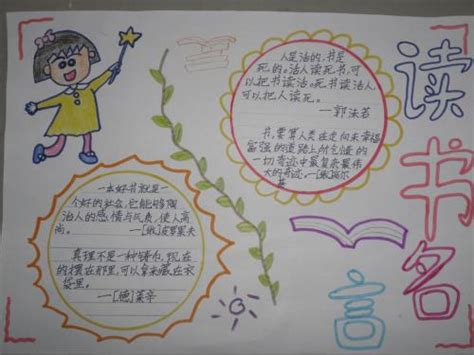 读书名言
人是活的,书是
死的。活人读死书,可
以把书读活。死书读活人,
可以把人读死。
—郭沫若
书,要算人类在走向未来幸福
富强的道路上所创造的
一切奇迹中最复杂最伟
大的奇迹。—[俄]高尔
基
一本好书就是一
个好的社会,它能够陶
冶人的感情与气质,使人高
尚。 —[俄]皮罗果夫
真理不是一种铸币,现在
的摆在那里,可以拿来藏在衣
袋里。
—[德]莱辛